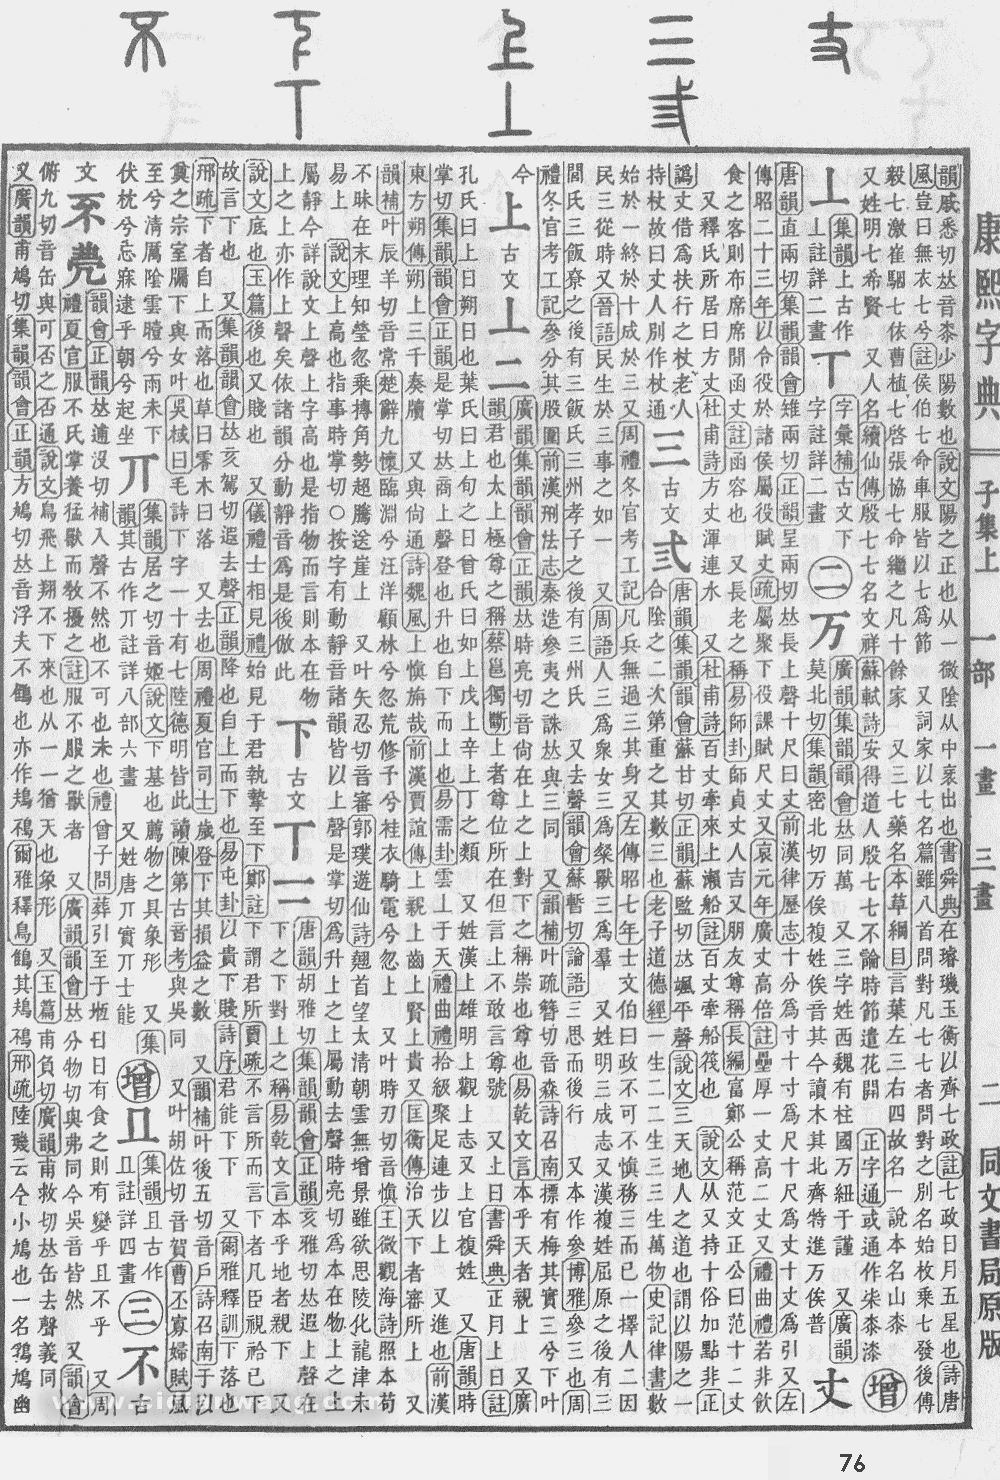 韻戚悉切𠀤音桼少陽數也說文陽之正也从一微陰从中衺出也書舜典在璿璣玉衡以齊七政註七政日月五星也詩唐
風豈曰無衣七兮註侯伯七命車服皆以七爲節 又詞家以七名篇雖八首問對凡七七者問對之別名始枚乗七發後傅
毅七激崔駰七依曹植七啓張協七命繼之凡十餘家 又三七藥名本草綱目言葉左三右四故名一說本名山桼
又姓明七希賢 又人名續仙傳殷七七名文祥蘇軾詩安得道人殷七七不論時節遣花開 正字通或通作柒桼漆 增
丄 集韻上古作丄註詳二畫 丅 字彙補古文下字註詳二畫 二 万 廣韻集韻韻會𠀤同萬 又三字姓西魏有柱國万紐于謹 又廣韻莫北切集韻密北切万俟複姓俟音其今讀木其北齊特進万俟普 丈
唐韻直兩切集韻韻會雉兩切正韻呈兩切𠀤長上聲十尺曰丈前漢律歷志十分爲寸十寸爲尺十尺爲丈十丈爲引又左
傳昭二十三年以令役於諸侯屬役賦丈疏屬聚下役課賦尺丈又哀元年廣丈高倍註壘厚一丈高二丈又禮曲禮若非飮
食之客則布席席閒函丈註函容也 又長老之稱易師卦師貞丈人吉又朋友尊稱長編富鄭公稱范文正公曰范十二丈
又釋氏所居曰方丈杜甫詩方丈渾連水 又杜甫詩百丈牽來上瀨船註百丈牽船筏也 說文从又持十俗加點非正
譌丈借爲扶行之杖老人持杖故曰丈人別作杖通 三 古文弎 唐韻集韻韻會蘇甘切正韻蘇監切𠀤颯平聲說文三天地人之道也謂以陽之一合陰之二次第重之其數三也老子道德經一生二二生三三生萬物史記律書數
始於一終於十成於三又周禮冬官考工記凡兵無過三其身又左傳昭七年士文伯曰政不可不愼務三而已一擇人二因
民三從時又晉語民生於三事之如一 又周語人三爲衆女三爲粲獸三爲羣 又姓明三成志又漢複姓屈原之後有三
閭氏三飯尞之後有三飯氏三州孝子之後有三州氏 又去聲韻會蘇暫切論語三思而後行 又本作參博雅參三也周
禮冬官考工記參分其股圍前漢刑法志秦造參夷之誅𠀤與三同 又韻補叶疏簪切音森詩召南摽有梅其實三兮下叶
今 上 古文丄二 廣韻集韻韻會正韻𠀤時亮切音尙在上之上對下之稱崇也尊也易乾文言本乎天者親上 又廣韻君也太上極尊之稱蔡邕獨斷上者尊位所在但言上不敢言尊號 又上日書舜典正月上日註
孔氏曰上日朔日也葉氏曰上旬之日曾氏曰如上戊上辛上丁之類 又姓漢上雄明上觀上志又上官複姓 又唐韻時
掌切集韻韻會正韻是掌切𠀤商上聲登也升也自下而上也易需卦雲上于天禮曲禮拾級聚足連步以上 又進也前漢
東方朔傳朔上三千奏牘 又與尙通詩魏風上愼旃哉前漢賈誼傳上親上齒上賢上貴又匡衡傳治天下者審所上 又
韻補叶辰羊切音常楚辭九懷臨淵兮汪洋顧林兮忽荒修予兮袿衣騎電兮忽上 又叶時刃切音愼王微觀海詩照本苟
不昧在末理知瑩忽乘摶角勢超騰送崖上 又叶矢忍切音審郭璞遊仙詩翹首望太清朝雲無增景雖欲思陵化龍津未
易上 說文上高也指事時掌切○按字有動靜音諸韻皆以上聲是掌切爲升上之上屬動去聲時亮切爲本在物上之上
屬靜今詳說文上聲上字高也是指物而言則本在物上之上亦作上聲矣依諸韻分動靜音爲是後倣此 下 古文丅二 唐韻胡雅切集韻韻會正韻亥雅切𠀤遐上聲在下之下對上之稱易乾文言本乎地者親下 又
說文底也玉篇後也又賤也 又儀禮士相見禮始見于君執摯至下鄭註下謂君所賈疏不言所而言下者凡臣視袷已下
故言下也 又集韻韻會𠀤亥駕切遐去聲正韻降也自上而下也易屯卦以貴下賤詩序君能下下 又爾雅釋訓下落也
邢疏下者自上而落也草曰零木曰落 又去也周禮夏官司士歲登下其損益之數 又韻補叶後五切音戶詩召南于以
奠之宗室牖下與女叶吳棫曰毛詩下字一十有七陸德明皆此讀陳第古音考與吳同 又叶胡佐切音賀曹丕寡婦賦風
至兮淸厲陰雲曀兮雨未下伏枕兮忘寐逮乎朝兮起坐 丌 集韻居之切音姬說文下基也薦物之具象形 又集韻其古作丌註詳八部六畫 又姓唐丌實丌士能 增 且 集韻且古作且註詳四畫 三 不 古
文 不𠑹 韻會正韻𠀤逋沒切補入聲不然也不可也未也禮曾子問葬引至于堩日有食之則有變乎且不乎 又周禮夏官服不氏掌養猛獸而敎擾之註服不服之獸者 又廣韻韻會𠀤分物切與弗同今吳音皆然 又韻會
俯九切音缶與可否之否通說文鳥飛上翔不下來也从一一猶天也象形 又玉篇甫負切廣韻甫救切𠀤缶去聲義同
又廣韻甫鳩切集韻韻會正韻方鳩切𠀤音浮夫不鵻也亦作鳺鴀爾雅釋鳥鵻其鳺鴀邢疏陸璣云今小鳩也一名鵓鳩幽
康熙字典 子集上 一部 一畫 三畫 二 同文書局原版
76